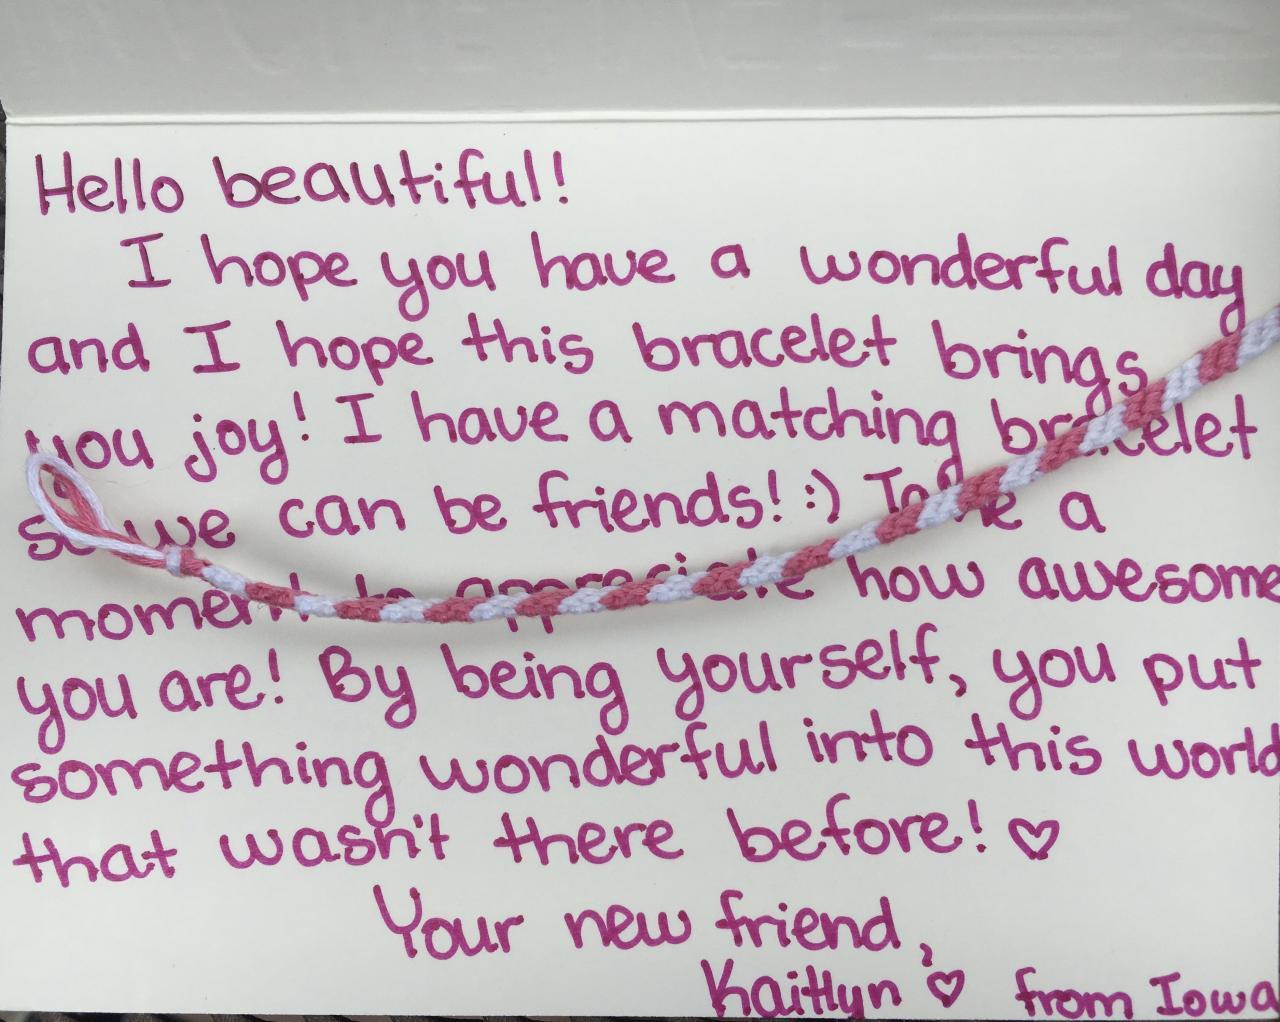 Hello beautiful!
I hope you have a wonderful day
and I hope this bracelet brings
you joy! I have a matching bracelet
so we can be friends! :) Take a
moment to appreciate how awesome
you are! By being yourself, you put
something wonderful into this world
that wasn't there before! ♡
Your new friend,
Kaitlyn ♡ from Iowa